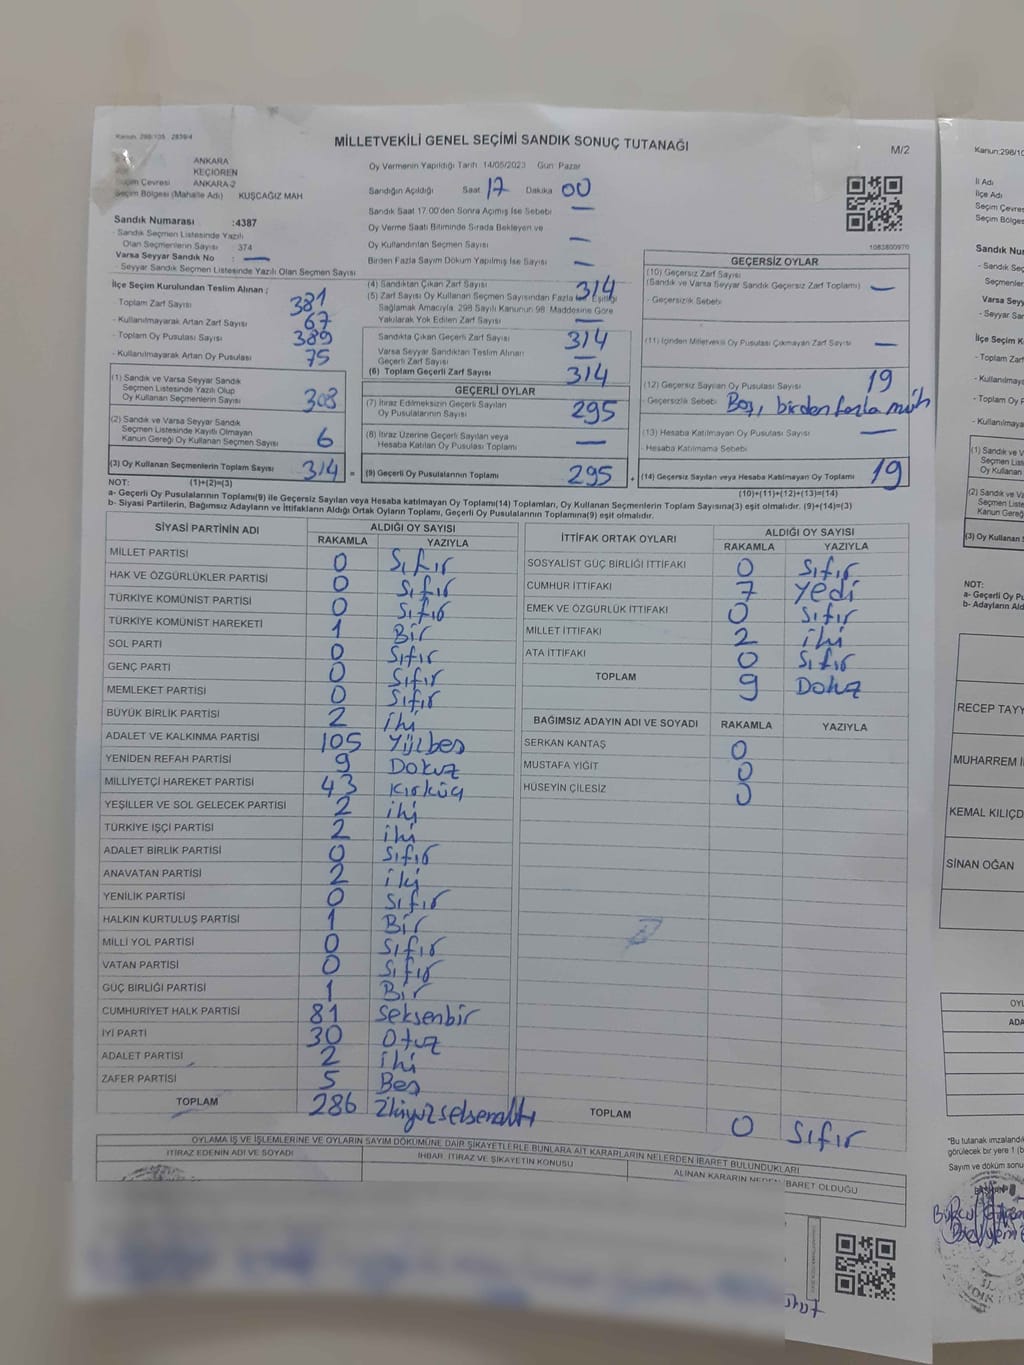 Kanun: 298/105 2839/4
MİLLETVEKİLİ GENEL SEÇİMİ SANDIK SONUÇ TUTANAĞI
M/2
ANKARA
KEÇİÖREN
Seçim Çevresi ANKARA-2
Seçim Bölgesi (Mahalle Adı) KUŞCAĞIZ MAH
Oy Vermenin Yapıldığı Tarih 14/05/2023 Gün Pazar
Sandığın Açıldığı Saat 17 Dakika 00
Sandık Saat 17.00'den Sonra Açımış İse Sebebi —
Oy Verme Saati Bitiminde Sırada Bekleyen ve
Oy Kullandırılan Seçmen Sayısı —
Birden Fazla Sayım Döküm Yapılmış İse Sayısı —
1083800970
Sandık Numarası :4387
- Sandık Seçmen Listesinde Yazılı
Olan Seçmenlerin Sayısı : 374
Varsa Seyyar Sandık No : —
- Seyyar Sandık Seçmen Listesinde Yazılı Olan Seçmen Sayısı
İlçe Seçim Kurulundan Teslim Alınan ;
- Toplam Zarf Sayısı 381
- Kullanılmayarak Artan Zarf Sayısı 67
- Toplam Oy Pusulası Sayısı 389
- Kullanılmayarak Artan Oy Pusulası 75
(1) Sandık ve Varsa Seyyar Sandık
Seçmen Listesinde Yazılı Olup
Oy Kullanan Seçmenlerin Sayısı 308
(2) Sandık ve Varsa Seyyar Sandık
Seçmen Listesinde Kayıtlı Olmayan
Kanun Gereği Oy Kullanan Seçmen Sayısı 6
(3) Oy Kullanan Seçmenlerin Toplam Sayısı 314 =
(4) Sandıktan Çıkan Zarf Sayısı 314
(5) Zarf Sayısı Oy Kullanan Seçmen Sayısından Fazla İse, Eşitliği
Sağlamak Amacıyla, 298 Sayılı Kanunun 98. Maddesine Göre
Yakılarak Yok Edilen Zarf Sayısı —
Sandıkta Çıkan Geçerli Zarf Sayısı 314
Varsa Seyyar Sandıktan Teslim Alınan
Geçerli Zarf Sayısı —
(6) Toplam Geçerli Zarf Sayısı 314
GEÇERLİ OYLAR
(7) İtiraz Edilmeksizin Geçerli Sayılan
Oy Pusulalarının Sayısı 295
(8) İtiraz Üzerine Geçerli Sayılan veya
Hesaba Katılan Oy Pusulası Toplamı —
(9) Geçerli Oy Pusulalarının Toplamı 295 +
GEÇERSİZ OYLAR
(10) Geçersiz Zarf Sayısı
(Sandık ve Varsa Seyyar Sandık Geçersiz Zarf Toplamı) —
- Geçersizlik Sebebi
(11) İçinden Milletvekili Oy Pusulası Çıkmayan Zarf Sayısı —
(12) Geçersiz Sayılan Oy Pusulası Sayısı 19
- Geçersizlik Sebebi Boş, birden fazla müh
(13) Hesaba Katılmayan Oy Pusulası Sayısı —
- Hesaba Katılmama Sebebi
(14) Geçersiz Sayılan veya Hesaba Katılmayan Oy Toplamı 19
NOT: (1)+(2)=(3)
(10)+(11)+(12)+(13)=(14)
a- Geçerli Oy Pusulalarının Toplamı(9) ile Geçersiz Sayılan veya Hesaba katılmayan Oy Toplamı(14) Toplamları, Oy Kullanan Seçmenlerin Toplam Sayısına(3) eşit olmalıdır. (9)+(14)=(3)
b- Siyasi Partilerin, Bağımsız Adayların ve İttifakların Aldığı Ortak Oyların Toplamı, Geçerli Oy Pusulalarının Toplamına(9) eşit olmalıdır.
SİYASİ PARTİNİN ADI ALDIĞI OY SAYISI
RAKAMLA YAZIYLA
MİLLET PARTİSİ 0 Sıfır
HAK VE ÖZGÜRLÜKLER PARTİSİ 0 Sıfır
TÜRKİYE KOMÜNİST PARTİSİ 0 Sıfır
TÜRKİYE KOMÜNİST HAREKETİ 1 Bir
SOL PARTİ 0 Sıfır
GENÇ PARTİ 0 Sıfır
MEMLEKET PARTİSİ 0 Sıfır
BÜYÜK BİRLİK PARTİSİ 2 iki
ADALET VE KALKINMA PARTİSİ 105 Yüzbeş
YENİDEN REFAH PARTİSİ 9 Dokuz
MİLLİYETÇİ HAREKET PARTİSİ 43 Kırküç
YEŞİLLER VE SOL GELECEK PARTİSİ 2 iki
TÜRKİYE İŞÇİ PARTİSİ 2 iki
ADALET BİRLİK PARTİSİ 0 Sıfır
ANAVATAN PARTİSİ 2 iki
YENİLİK PARTİSİ 0 Sıfır
HALKIN KURTULUŞ PARTİSİ 1 Bir
MİLLİ YOL PARTİSİ 0 Sıfır
VATAN PARTİSİ 0 Sıfır
GÜÇ BİRLİĞİ PARTİSİ 1 Bir
CUMHURİYET HALK PARTİSİ 81 Seksenbir
İYİ PARTİ 30 Otuz
ADALET PARTİSİ 2 iki
ZAFER PARTİSİ 5 Beş
TOPLAM 286 İkiyüzseksenaltı
İTTİFAK ORTAK OYLARI ALDIĞI OY SAYISI
RAKAMLA YAZIYLA
SOSYALİST GÜÇ BİRLİĞİ İTTİFAKI 0 Sıfır
CUMHUR İTTİFAKI 7 Yedi
EMEK VE ÖZGÜRLÜK İTTİFAKI 0 Sıfır
MİLLET İTTİFAKI 2 iki
ATA İTTİFAKI 0 Sıfır
TOPLAM 9 Dokuz
BAĞIMSIZ ADAYIN ADI VE SOYADI RAKAMLA YAZIYLA
SERKAN KANTAŞ 0
MUSTAFA YİĞİT 0
HÜSEYİN ÇİLESİZ 0
TOPLAM 0 Sıfır
OYLAMA İŞ VE İŞLEMLERİNE VE OYLARIN SAYIM DÖKÜMÜNE DAİR ŞİKAYETLERLE BUNLARA AİT KARARLARIN NELERDEN İBARET BULUNDUKLARI
İTİRAZ EDENİN ADI VE SOYADI İHBAR, İTİRAZ VE ŞİKAYETİN KONUSU ALINAN KARARIN NEDEN İBARET OLDUĞU
Kanun:298/10
İl Adı
İlçe Adı
Seçim Çevres
Seçim Bölges
Sandık Nu
- Sandık Seç
Seçmenler
Varsa Seyy
- Seyyar San
İlçe Seçim K
- Toplam Zarf
- Kullanılmaya
- Toplam Oy P
- Kullanılmaya
(1) Sandık ve V
Seçmen List
Oy Kullanan
(2) Sandık ve Va
Seçmen Liste
Kanun Gereğ
(3) Oy Kullanan S
NOT:
a- Geçerli Oy Pu
b- Adayların Ald
RECEP TAYY
MUHARREM İ
KEMAL KILIÇD
SİNAN OĞAN
OYL
ADA
"Bu tutanak imzalandı
görülecek bir yere 1 (b
Sayım ve döküm sonu